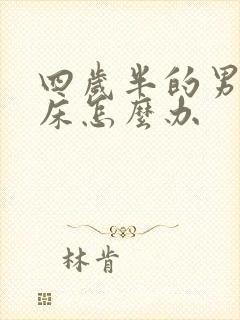 四歲半的男
床怎麼办
林肯